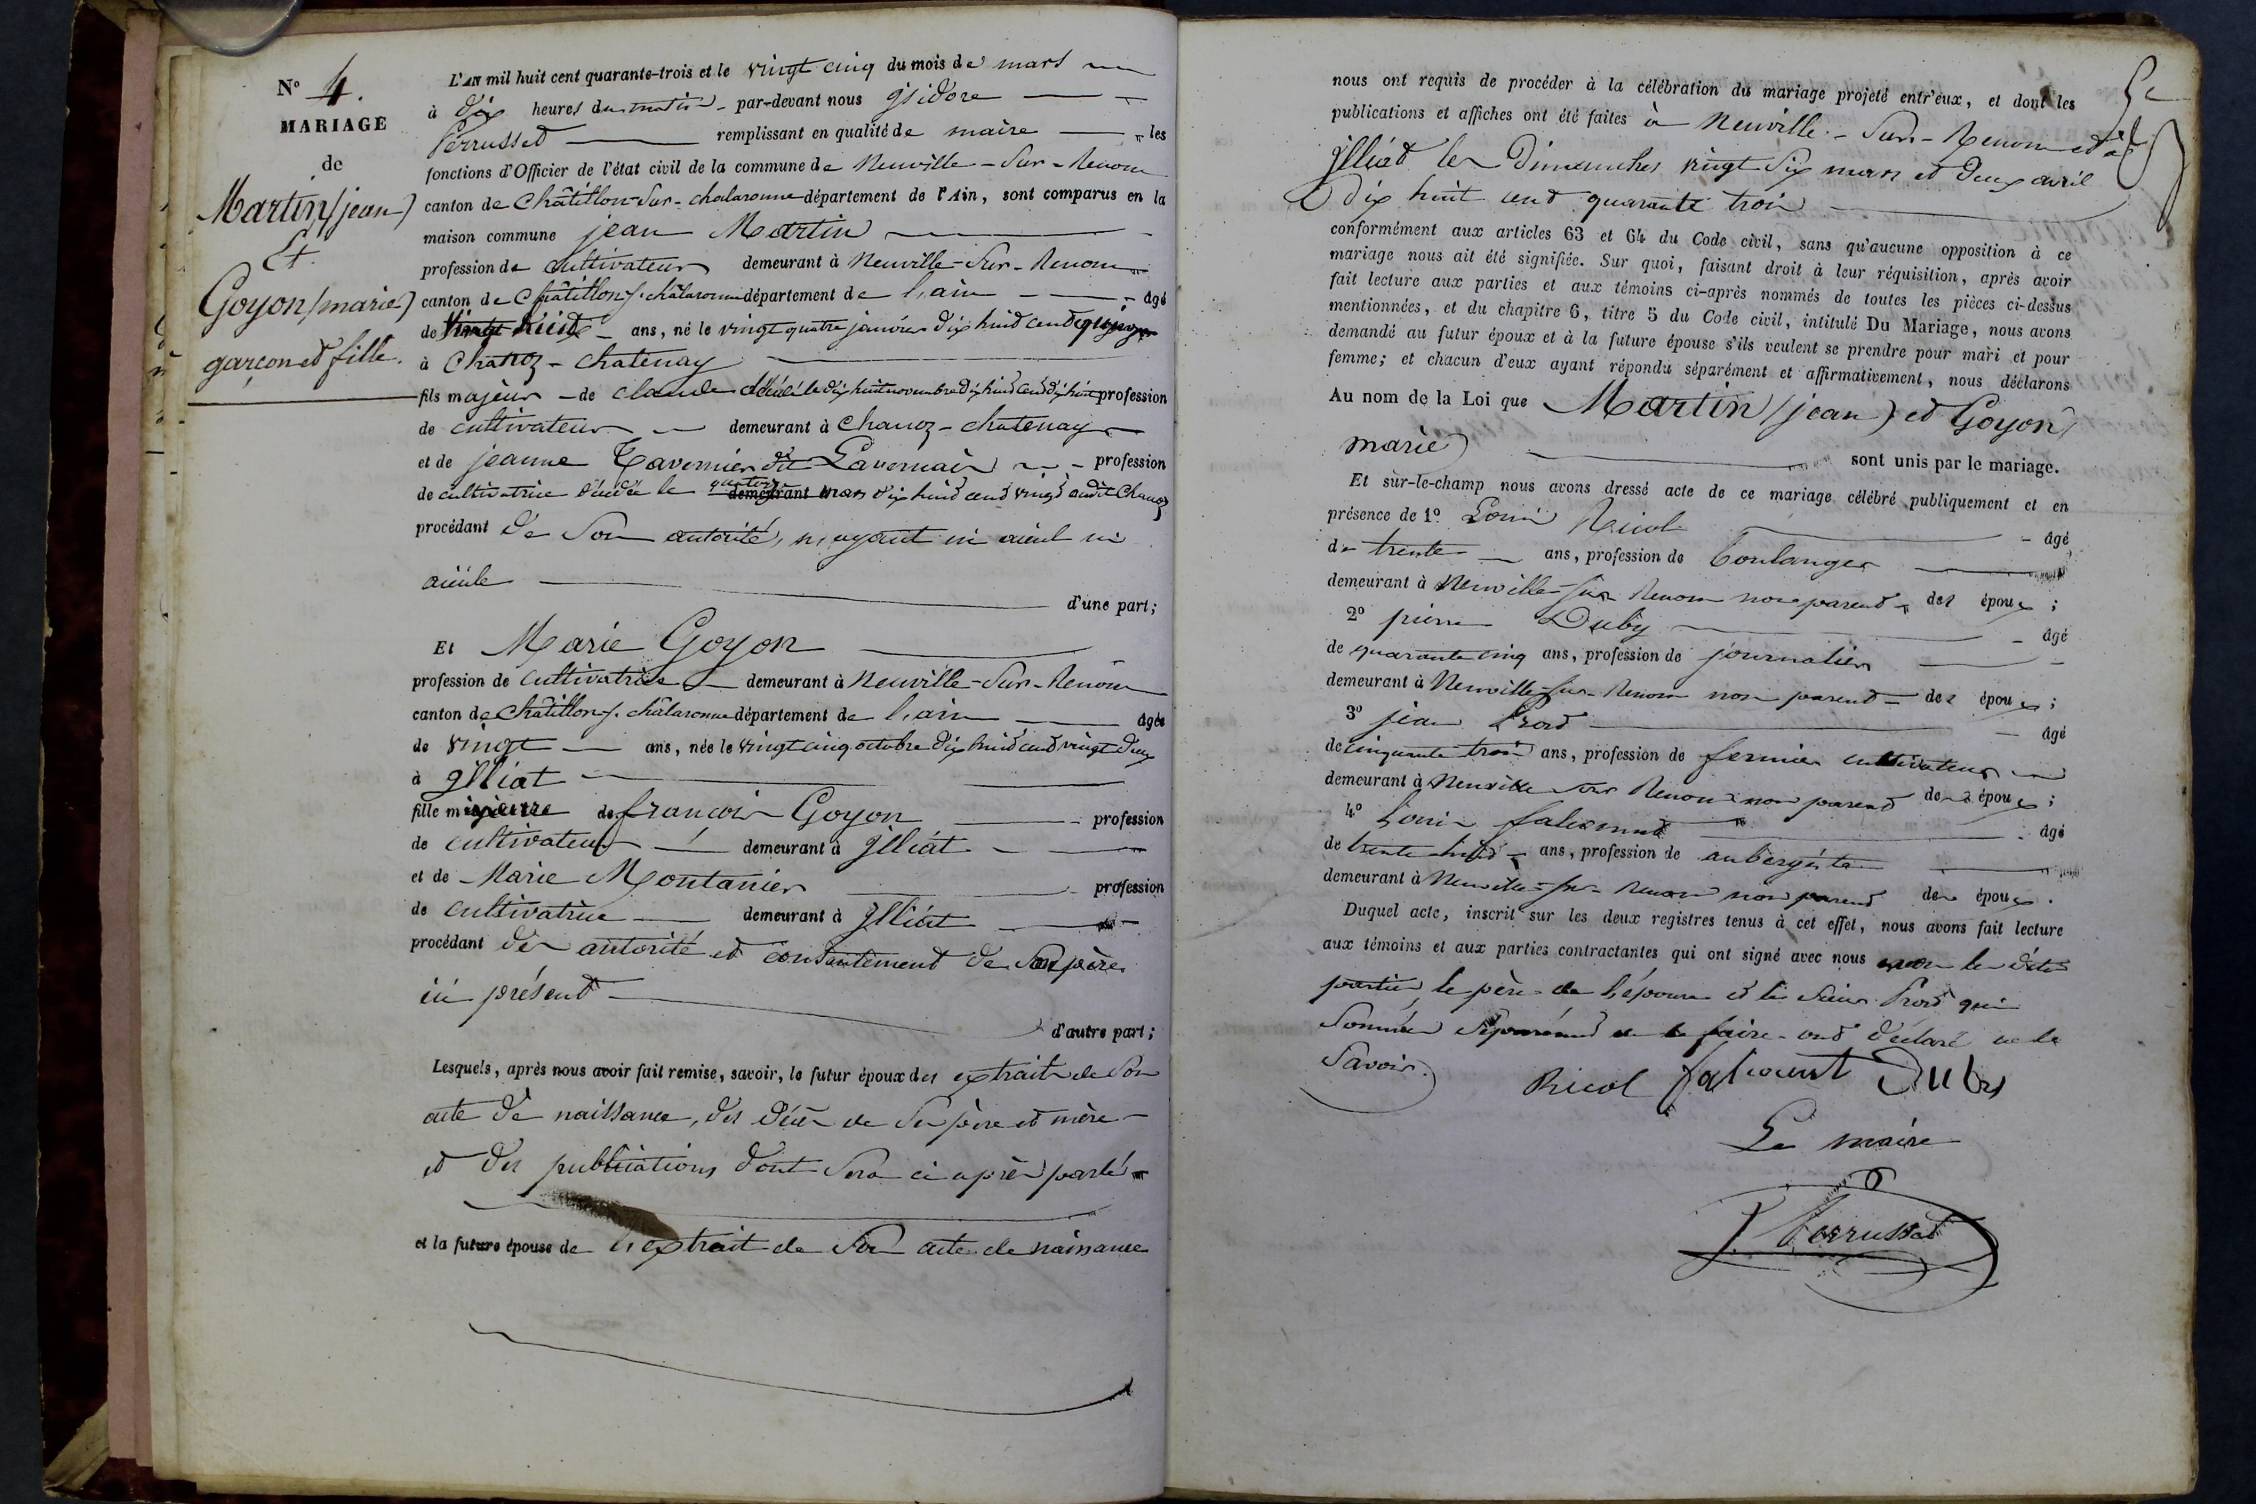 N° 4.
MARIAGE
de
Martin (jean)
Et
Goyon (marie)
garçon et fille.
L'AN mil huit cent quarante-trois et le vingt cinq du mois de mars
à dix heures du matin - par-devant nous isidore
Perrusset remplissant en qualité de maire les
fonctions d'Officier de l'état civil de la commune de Neuville-Sur-Renom
canton de Châtillon-Sur-chalaronne département de l'Ain, sont comparus en la
maison commune jean Martin
profession de cultivateur demeurant à Neuville-Sur-Renom
canton de Châtillon s. châlaronne département de l'ain - âgé
de vingt huit ans, né le vingt quatre janvier dix huit cent quinze
à Chanoz-chatenay
fils majeur de claude décédé le dix huit novembre dix huit cent dix huit profession
de cultivateur demeurant à Chanoz-chatenay
et de jeanne Tavernier dit Lavernai profession
de cultivatrice décédée le quatorze demeurant mars dix huit cent vingt audit Chanoz
procédant de Son autorité, n'ayant ni aieul ni
aieule
d'une part;
Et Marie Goyon
profession de cultivatrice demeurant à Neuville-Sur-Renom
canton de Châtillon s. châlaronne département de l'ain âgée
de vingt ans, née le vingt cinq octobre dix huit cent vingt deux
à illiat
fille mineure de françois Goyon profession
de cultivateur demeurant à illiat
et de Marie Montanier profession
de cultivatrice demeurant à illiat
procédant de autorité et consentement de Son père
ici présent
d'autre part;
Lesquels, après nous avoir fait remise, savoir, le futur époux des extraits de Son
acte de naissance, des décès de Ses père et mère
et des publications dont Sera ci après parlé
et la future épouse de l'extrait de Son acte de naissance
nous ont requis de procéder à la célébration du mariage projeté entr'eux, et dont les
publications et affiches ont été faites à Neuville-Sur-Renom et à
illiat les Dimanches vingt Six mars et deux avril
dix huit cent quarante trois
conformément aux articles 63 et 64 du Code civil, sans qu'aucune opposition à ce
mariage nous ait été signifiée. Sur quoi, faisant droit à leur réquisition, après avoir
fait lecture aux parties et aux témoins ci-après nommés de toutes les pièces ci-dessus
mentionnées, et du chapitre 6, titre 5 du Code civil, intitulé Du Mariage, nous avons
demandé au futur époux et à la future épouse s'ils veulent se prendre pour mari et pour
femme; et chacun d'eux ayant répondu séparément et affirmativement, nous déclarons
Au nom de la Loi que Martin (jean) et Goyon (
marie) sont unis par le mariage.
Et sur-le-champ nous avons dressé acte de ce mariage célébré publiquement et en
présence de 1° Louis Ricol âgé
de trente ans, profession de boulanger
demeurant à Neuville-sur Renom non parent des époux;
2° pierre Duby âgé
de quarante cinq ans, profession de journalier
demeurant à Neuville-sur-Renom non parent des époux;
3° jean Prost âgé
de cinquante trois ans, profession de fermier cultivateur
demeurant à Neuville sur Renom non parent des époux;
4° Louis falconnet âgé
de trente huit ans, profession de aubergiste
demeurant à Neuville-sur-Renom non parent des époux.
Duquel acte, inscrit sur les deux registres tenus à cet effet, nous avons fait lecture
aux témoins et aux parties contractantes qui ont signé avec nous non les dites
parties, le père de l'épouse et le Sieur Prost qui
Sommés Séparément de le faire ont déclaré ne le
Savoir.
Ricol falconnet Duby
Le maire
J. Perrusset